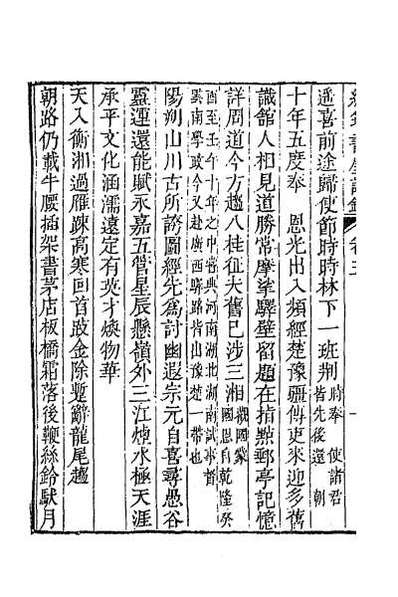 書屋詩鈔 卷三
遥喜前途歸使節時時林下一班荆
時奉 使諸君
皆先後還 朝
十年五度奉 恩光出入頻經楚豫疆傳吏來迎多舊
識館人相見道勝常摩挲驛壁留題在指點郵亭記憶
詳周道今方趨八桂征夫舊已涉三湘
觀國蒙
國恩自乾隆癸
酉至壬午十年之中嘗典河南湖北湖南試事督
雲南學政今又赴廣西驛路皆由豫楚一帶也
陽朔山川古所誇圖經先爲討幽遐宗元自喜尋愚谷
靈運還能賦永嘉五管星辰懸嶺外三江煙水極天涯
承平文化涵濡遠定有英才煥物華
天入衡湘過雁踈高寒回首金除蹔辭龍尾趨
朝路仍載牛腰插架書茅店板橋霜落後鞭絲鈴馱月